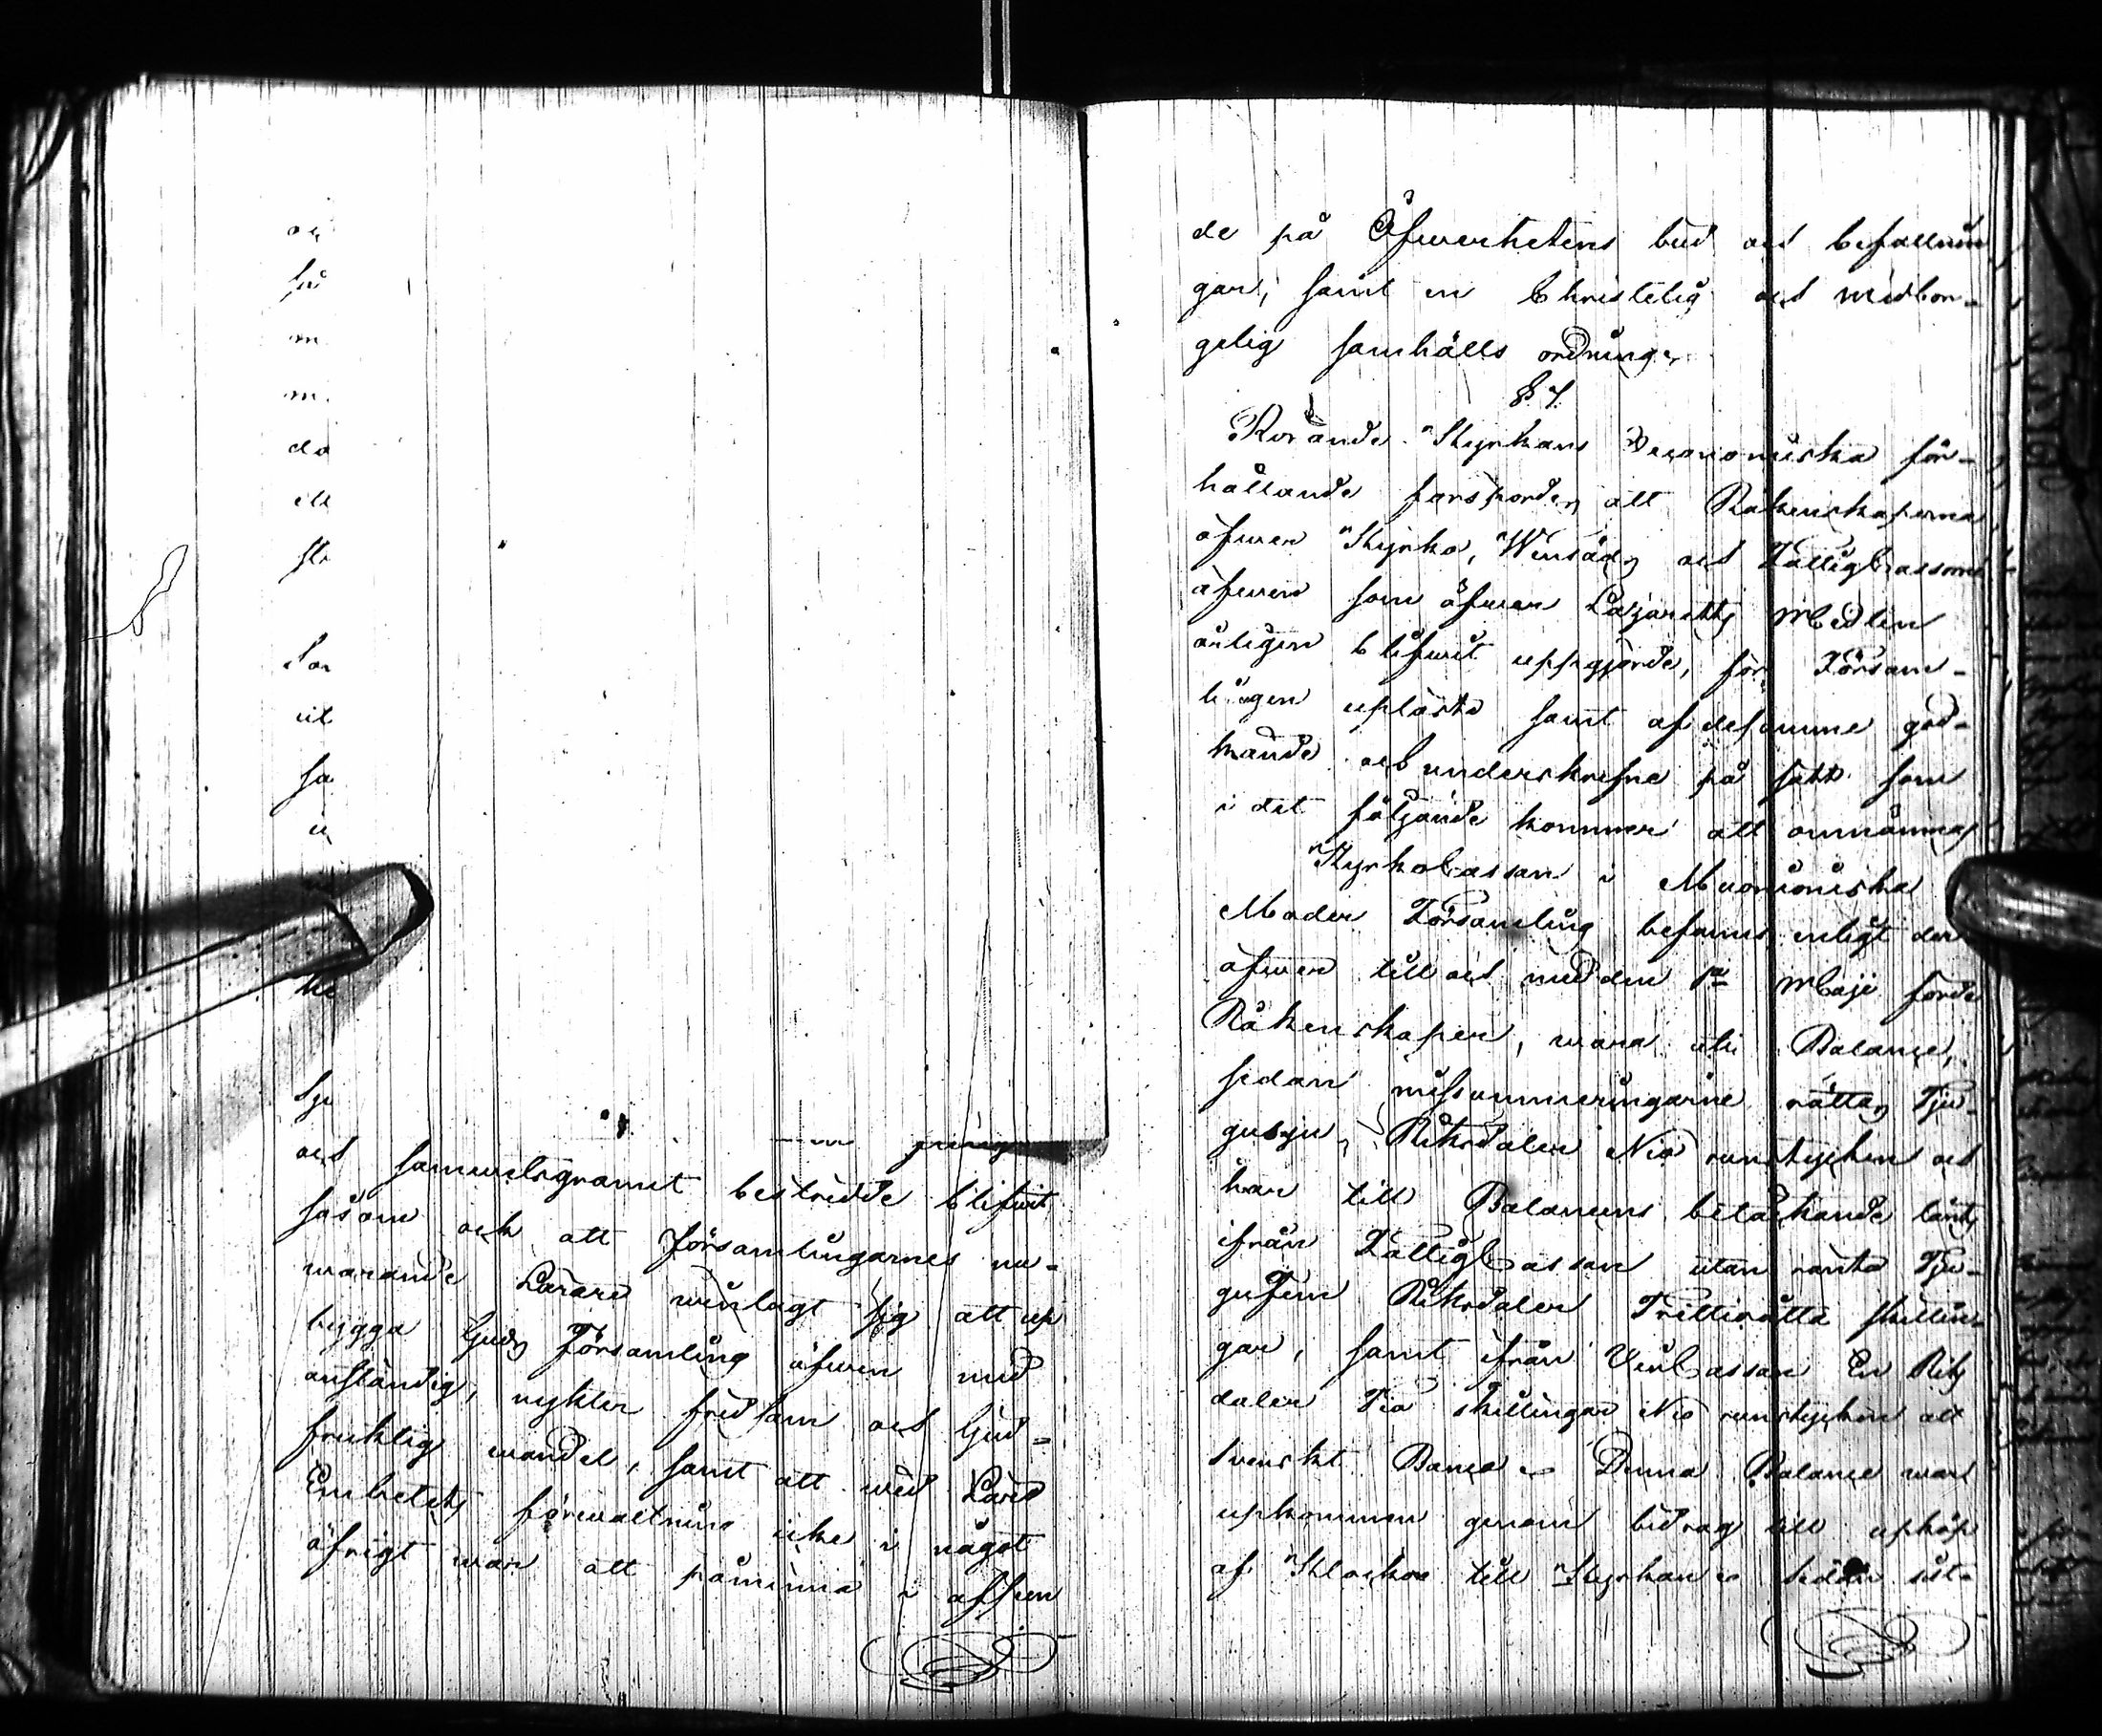 och samwetsgrannt bestridde blifwit
såsom och att Församlingarnes nu-
warande Lärare winlagt sig att up
bygga Guds Församling äfwen med
anständig, nykter fridsam och Gud-
fruktig wandel, samt att wid Läro
Embetets förwaltning icke i något
öfrigt war att påminna i afseen
de på Öfwerhetens bud och befallnin
gar, samt en Christelig och medbor-
gelig samhälls ordning.
§ 7
Rörande Kyrkans Oeconomiska för-
hållande förspordes att Räkenskaperna
öfwer Kyrko, Winsäds och FattigCassorne
äfwen som öfwer Lazaretts Medlen
årligen blifwit uppgjorde, för Försam-
lingen upläste samt af densamme god-
kände och underskrefne på sätt som
i det följande kommer att omnämnas
KyrkoCassan i Muonioniska
Moder Församling befanns enligt der
öfwer till och med den 1a Maji förde
Räkenskaper, wara uti Balance,
sedan missummeringarne rättats Tju-
gusju, Riksdaler Nio runstycken och
har till Balancens betäckande lånts
ifrån FattigCassan utan ränta Tju-
gufem Riksdaler Trettioåtta skillin-
gar, samt ifrån VinCassan En Riks
daler Tio skillingar Nio runstycken allt
Svenskt Banco. Denna Balance war
upkommen genom bidrag till uphöp
af Klockor till Kyrkan sedan ut-